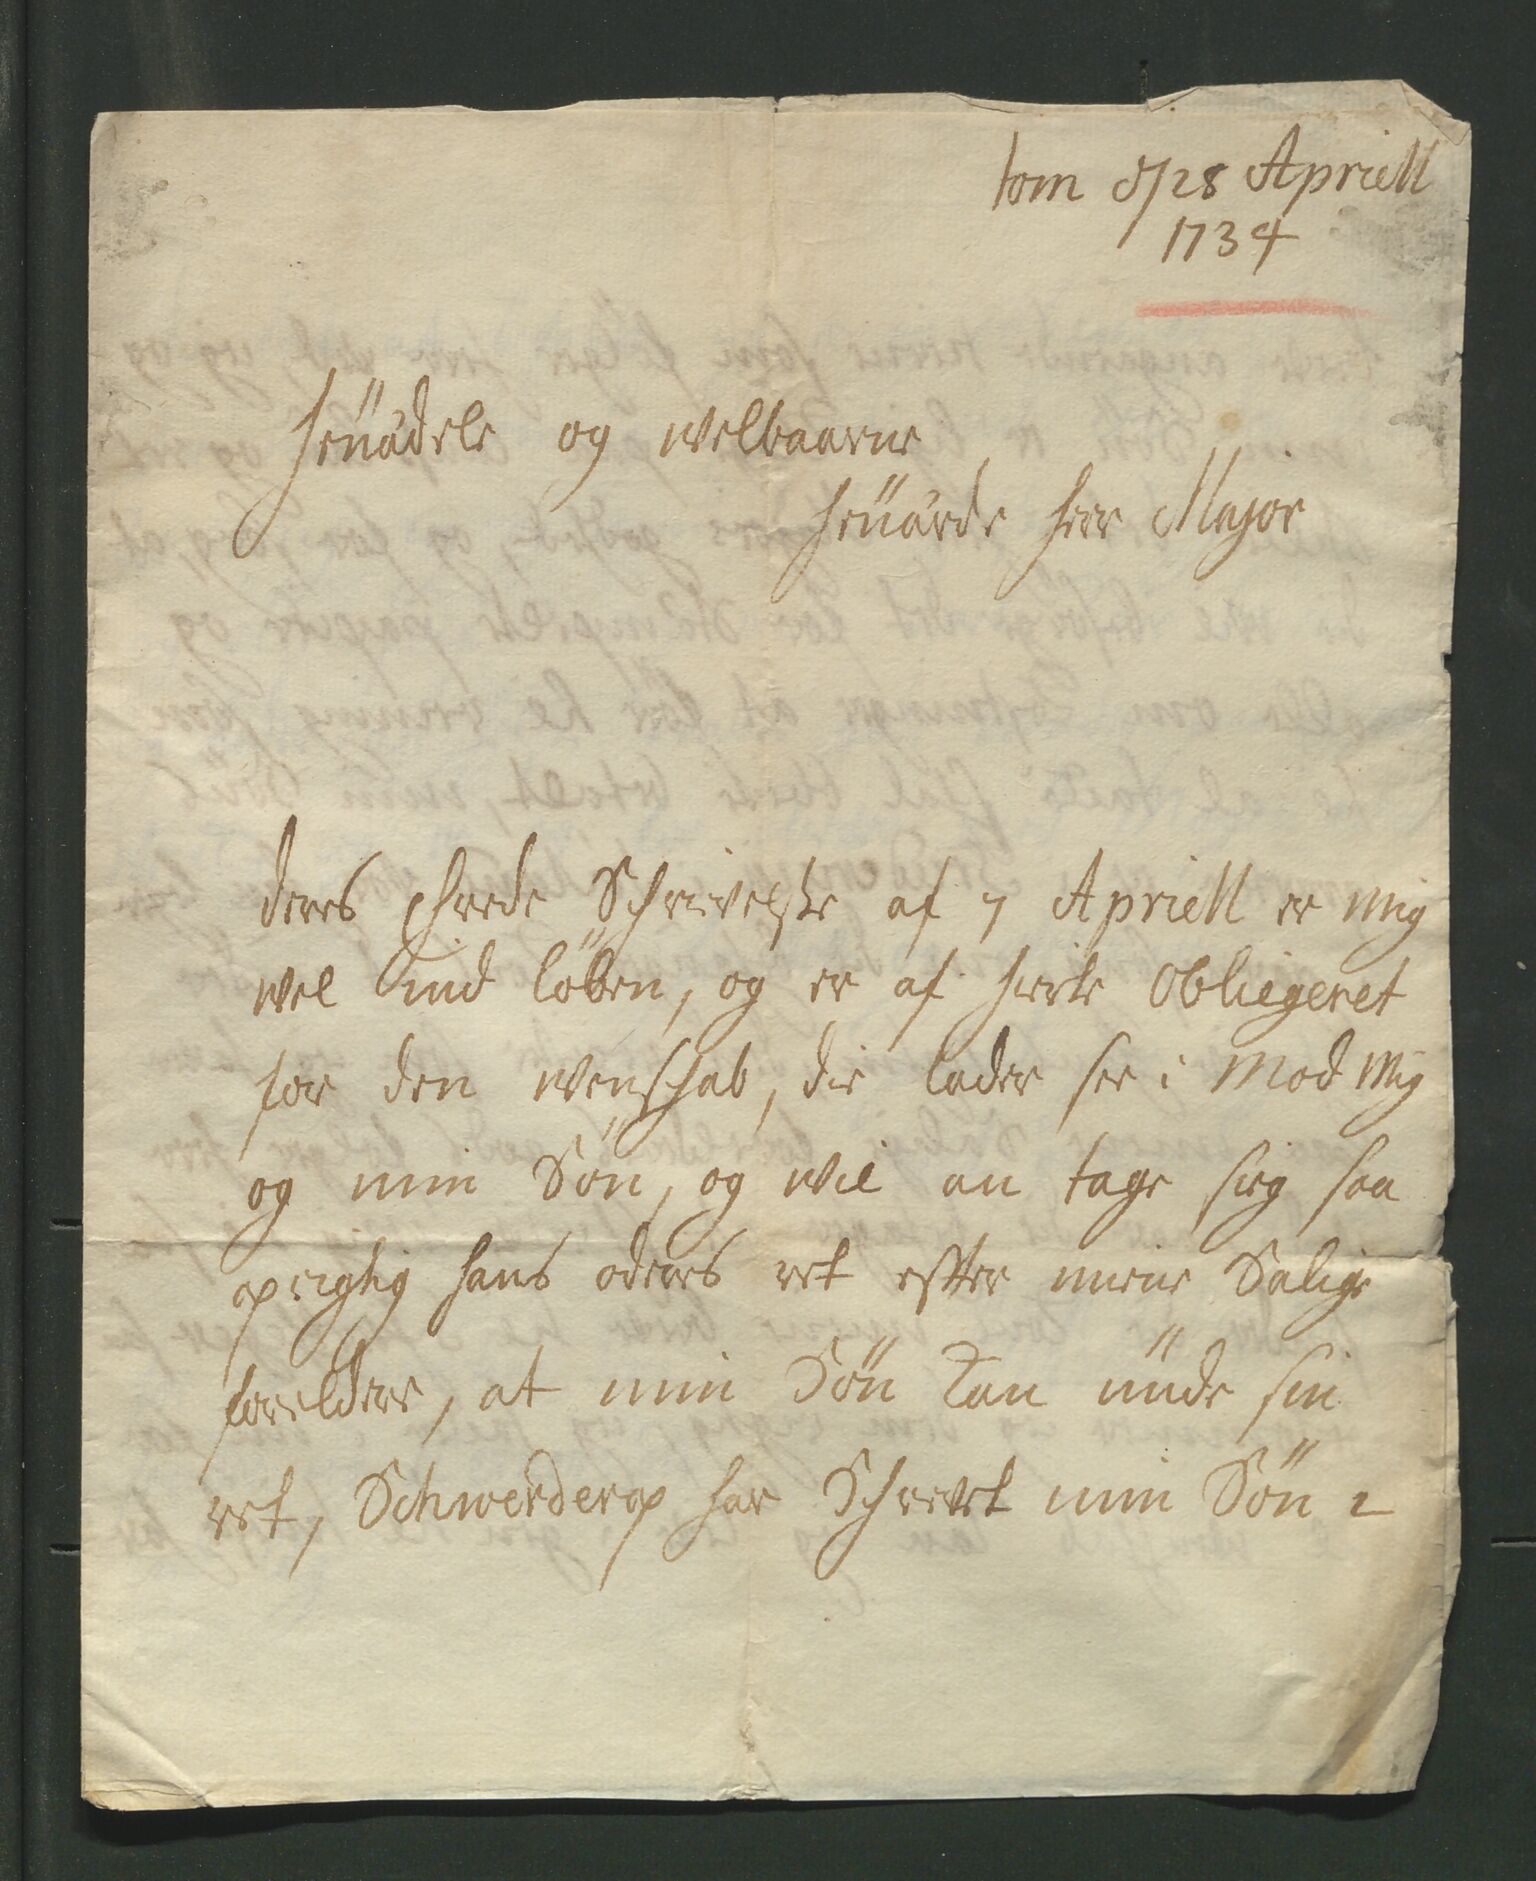 tom d/28 Apriell
1734
høuädele og welbaarne
høuärde herr Major
deres ehrede Schrivelsse af 7 Apriell er mig
wel ind löben, og er af hierte Obliegeret
for den wenschab, die lader see i Mod Mig
og min Sön, og wil an tage sieg saa
hans oderes ret effter miene Salige
foreldere, at min Sön kan nüde sin
ret, Schwerderop har Schrivet min Sön 2